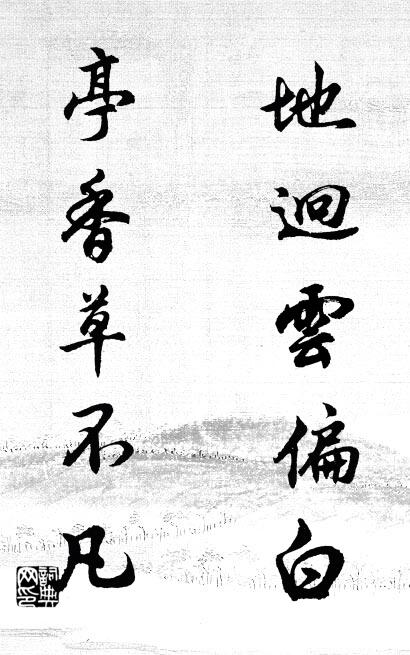 地迥雲偏白
亭香草不凡
詞典网印